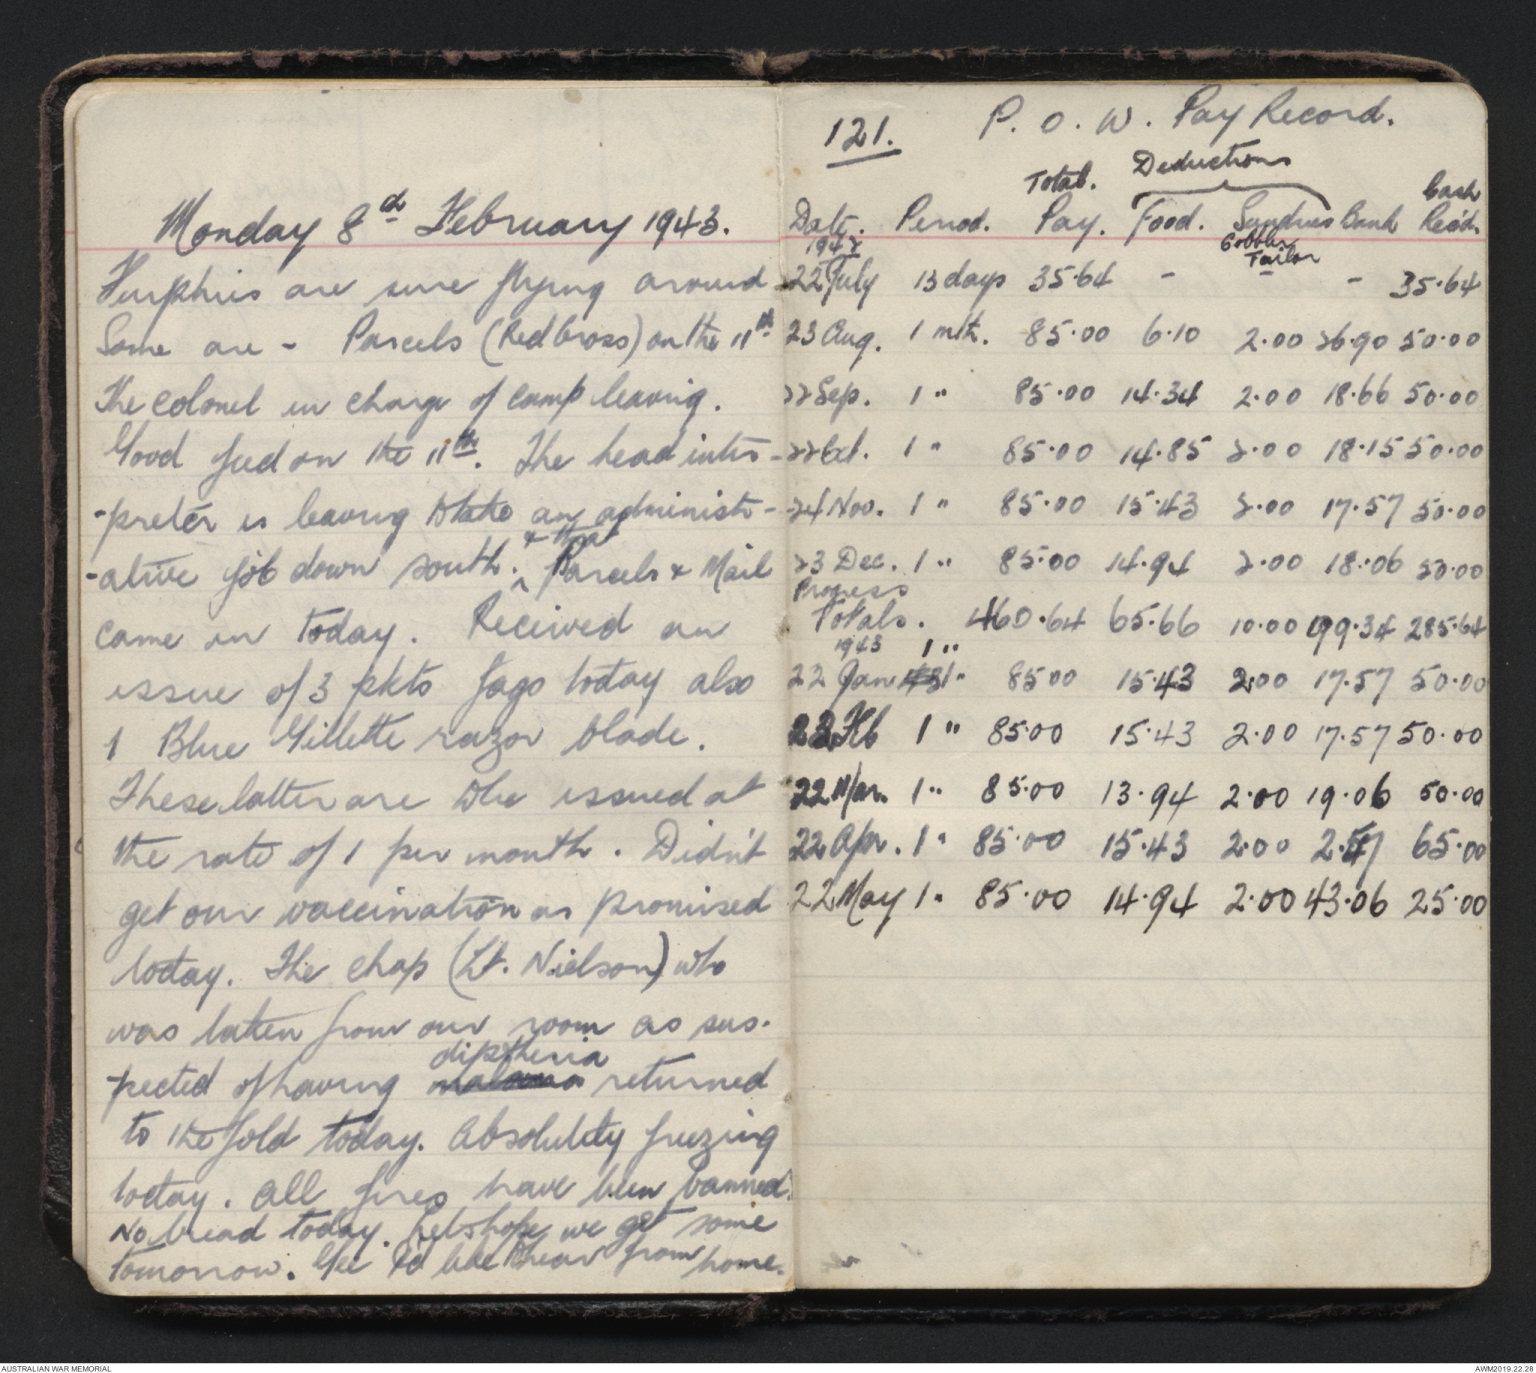 Monday 8th February 1943.
Furphies are sure flying around
Some are - Parcels (Red Cross) on the 11th
The colonel in charge of camp leaving.
Good feed on the 11th. The head inter-
-preter is leaving to take an administr-
-ative job down south. & that Parcels & Mail
came in today. Received an
issue of 3 pkts fags today also
1 Blue Gillette razor blade.
These latter are to be issued at
the rate of 1 per month. Didn't
get our vaccination as promised
today. The chap (Lt. Nielson) who
was taken from our room as sus-
-pected of having diptheria returned
to the fold today. Absolutely freezing
today. All fires have been banned.
No bread today. Lets hope we get some
tomorrow. Gee I'd like to hear from home.
121. P. O. W. Pay Record.
Total. Deductions Cash
Date. Period. Pay. Food. Sundries Bank Rec'd.
1942 Cobbler Tailor
22 July 13 days 35.64 - - 35.64
23 Aug. 1 mth. 85.00 6.10 2.00 26.90 50.00
22 Sep. 1 " 85.00 14.34 2.00 18.66 50.00
22 Oct. 1 " 85.00 14.85 2.00 18.15 50.00
24 Nov. 1 " 85.00 15.43 2.00 17.57 50.00
23 Dec. 1 " 85.00 14.94 2.00 18.06 50.00
Progress
Totals. 460.64 65.66 10.00 199.34 285.64
1943 1 "
22 Jan 85 00 15.43 2.00 17.57 50.00
22 Feb 1 " 85.00 15.43 2.00 17.57 50.00
22 Mar. 1 " 85.00 13.94 2.00 19.06 50.00
22 Apr. 1 " 85.00 15.43 2.00 2.57 65.00
22 May 1 " 85.00 14.94 2.00 43.06 25.00
AUSTRALIAN WAR MEMORIAL
AWM2019.22.28